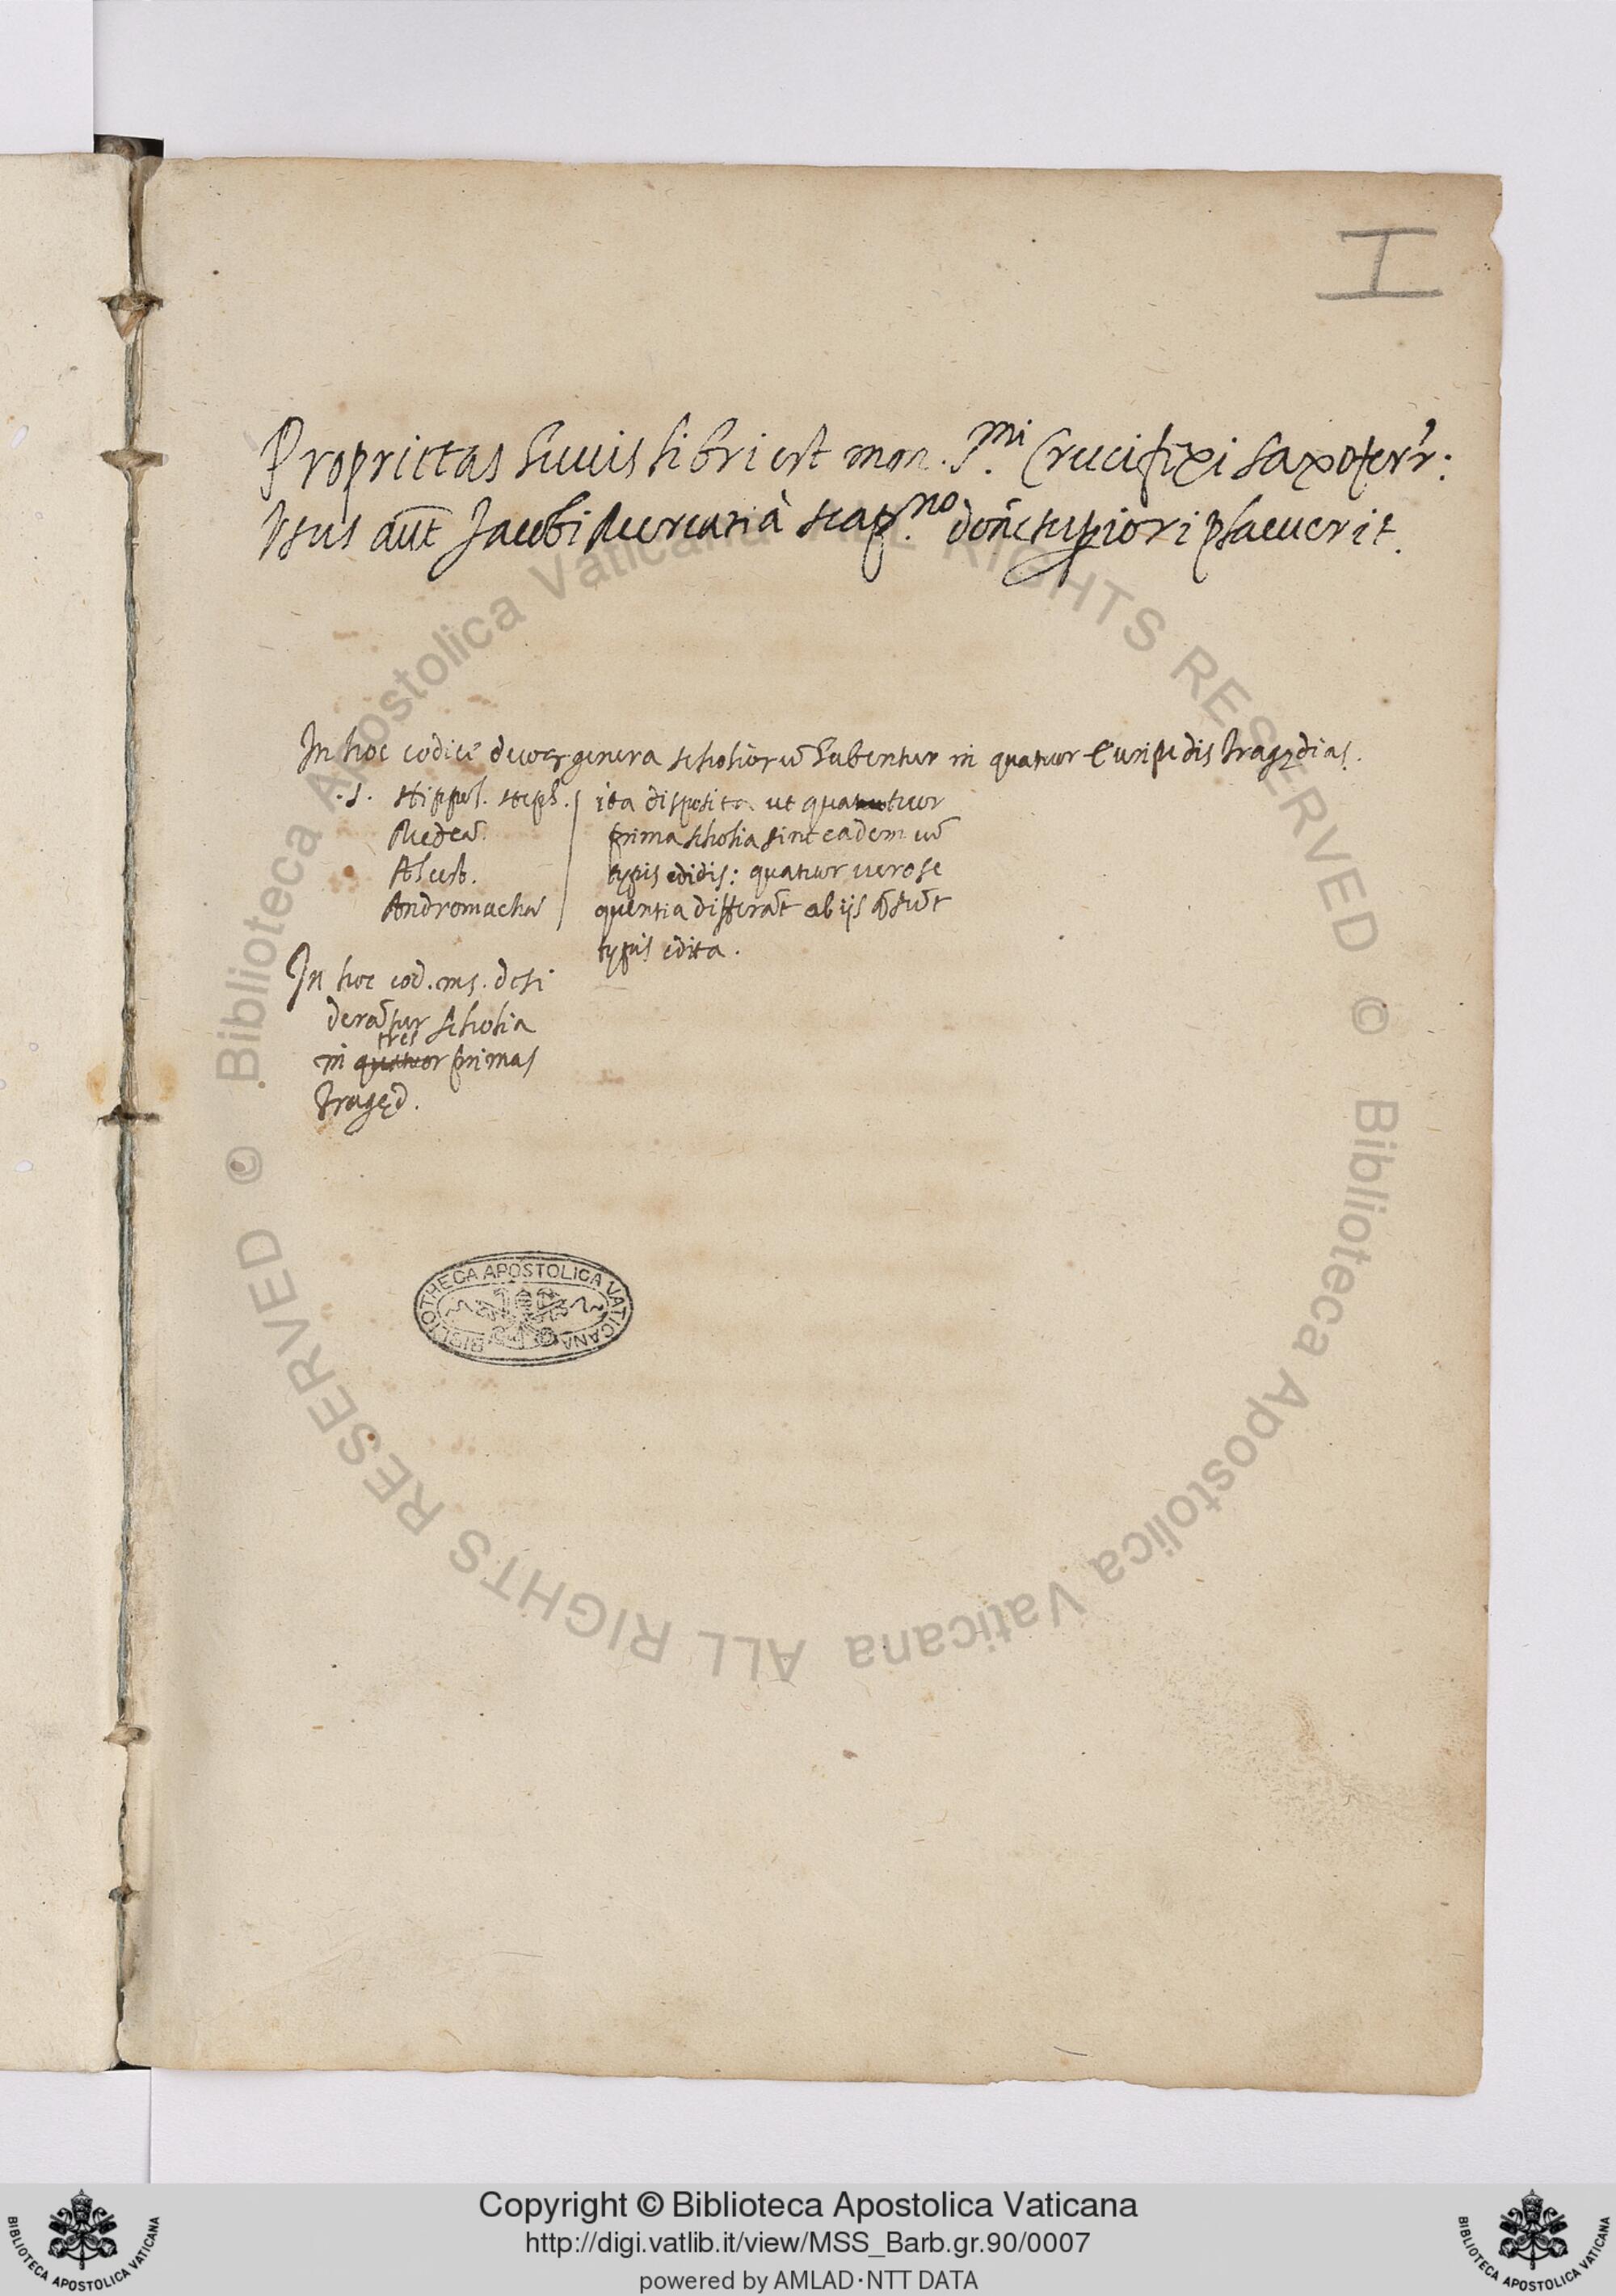 I
Proprietas huius libri est mon. S.mi Crucifixi Saxoferr:
Usus aut Jacobi Mercurii à scap.no donec supiori placuerit.
In hoc codice duo genera scholiorũ habentur in quatuor Euripidis tragędias.
.s. Hippol. steph.
Medeã
Alcest.
Andromachã
ita disposita ut quatuor
prima scholia sint eadem cũ
typis edidis: quatuor vero se
quentia differãt ab ijs q̃ sũt
typis edita.
In hoc cod. ms. desi
derãtur scholia
tres
in quatuor primas
tragęd.
BIBLIOTHECA APOSTOLICA VATICANA
© Biblioteca Apostolica Vaticana ALL RIGHTS RESERVED
© Biblioteca Apostolica Vaticana ALL RIGHTS RESERVED
Copyright © Biblioteca Apostolica Vaticana
http://digi.vatlib.it/view/MSS_Barb.gr.90/0007
powered by AMLAD·NTT DATA
BIBLIOTECA APOSTOLICA VATICANA
BIBLIOTECA APOSTOLICA VATICANA